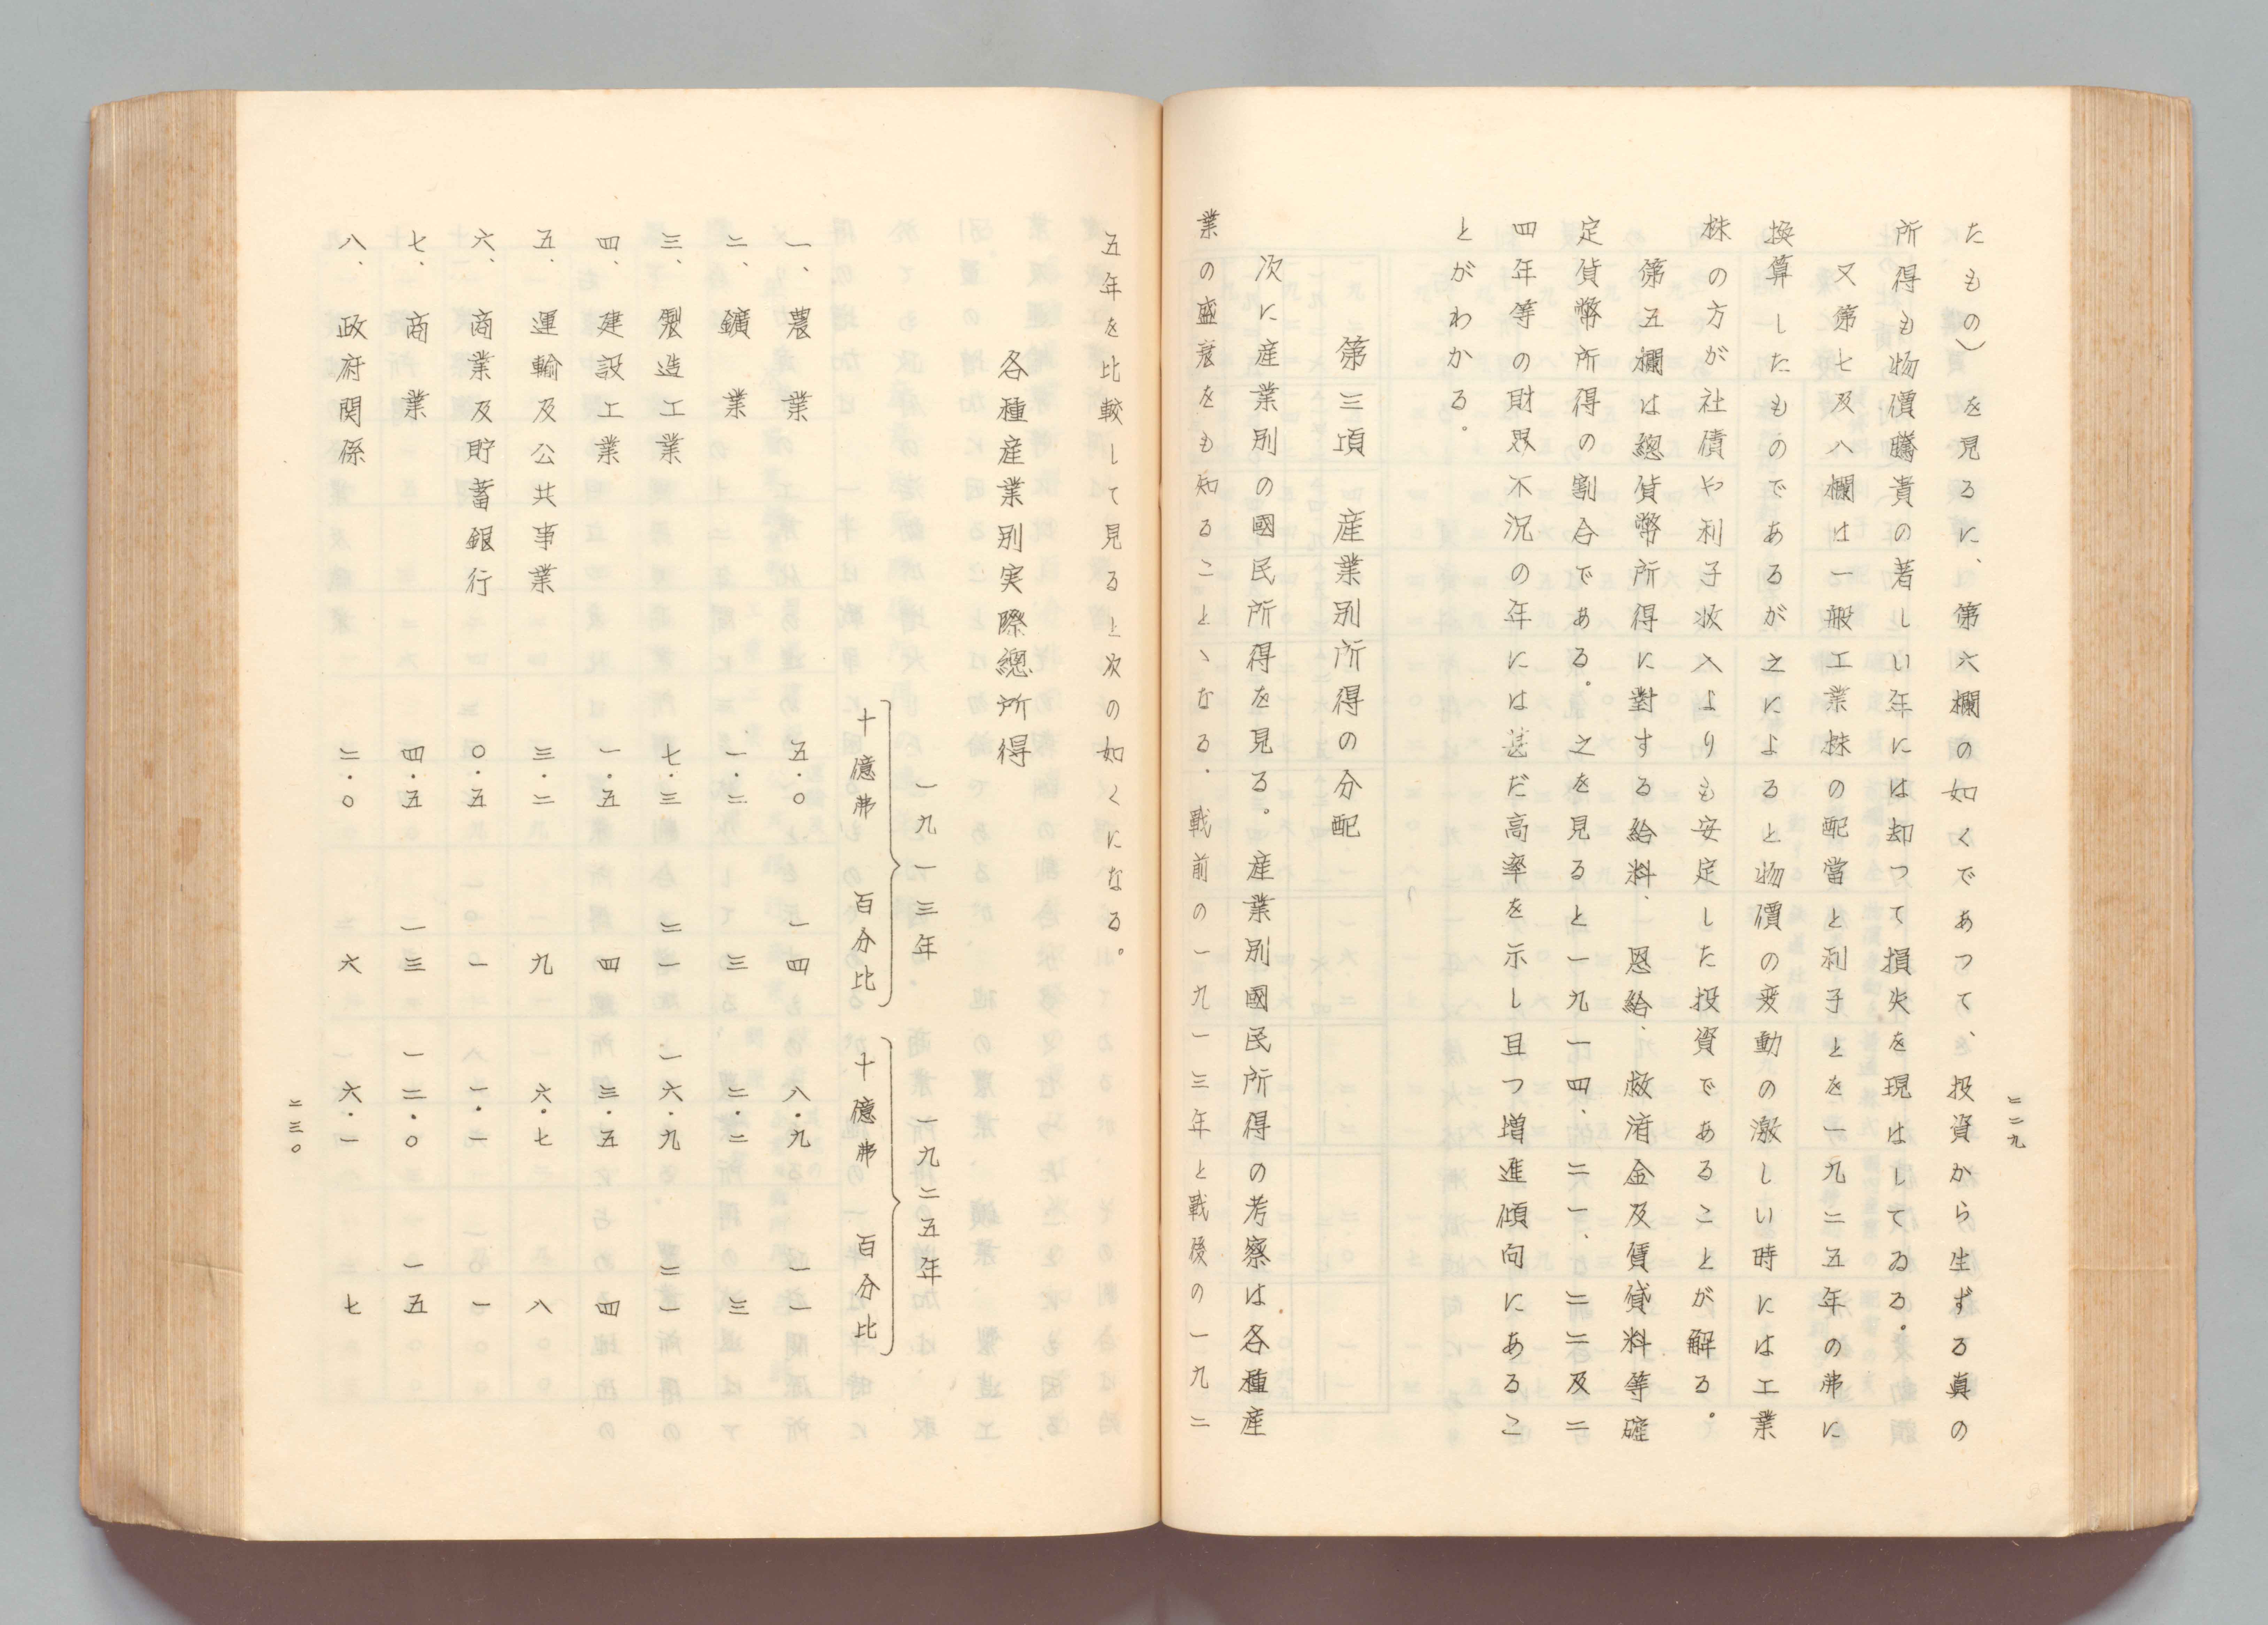 二二九
たもの）を見るに、第六欄の如くであつて、投資から生ずる真の
所得も物價騰貴の著しい年には却つて損失を現はしてゐる。
又第七及八欄は一般工業株の配當と利子とを一九二五年の弗に
換算したものであるが之によると物價の変動の激しい時には工業
株の方が社債や利子收入よりも安定した投資であることが解る。
第五欄は總貨幣所得に對する給料、恩給、救済金及賃貸料等確
定貨幣所得の割合である。之を見ると一九一四、二一、二二及二
四年等の財界不況の年には甚だ高率を示し且つ増進傾向にあるこ
とがわかる。
第三項　産業別所得の分配
次に産業別の國民所得を見る。産業別國民所得の考察は各種産
業の盛衰をも知ることゝなる。戰前の一九一三年と戰後の一九二
五年を比較して見ると次の如くになる。
各種産業別実際總所得
一九一三年　一九二五年
十億弗　百分比　十億弗　百分比
一、農業　五・〇　一四　八・九　一一
二、鑛業　一・二　三　二・二　三
三、製造工業　七・三　二一　一六・九　二一
四、建設工業　一・五　四　三・五　四
五、運輸及公共事業　三・二　九　六・七　八
六、商業及貯蓄銀行　〇・五　一　一・一　一
七、商業　四・五　一三　一二・〇　一五
八、政府関係　二・〇　六　六・一　七
二三〇